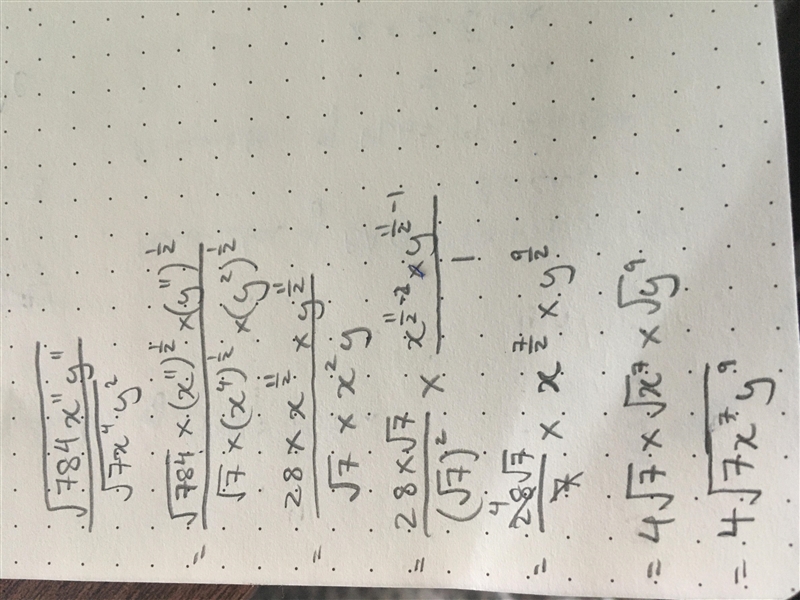 √(784x¹¹y¹¹) / √(7x⁴y²)
= (√784 × (x¹¹)^½ × (y¹¹)^½) / (√7 × (x⁴)^½ × (y²)^½)
= (28 × x^(11/2) × y^(11/2)) / (√7 × x² y)
= (28 × √7) / (√7)² × (x^(11/2 - 2) × y^(11/2 - 1)) / 1
= ⁴28√7 / 7 × x^(7/2) × y^(9/2)
= 4√7 × √x⁷ × √y⁹
= 4√(7x⁷y⁹)